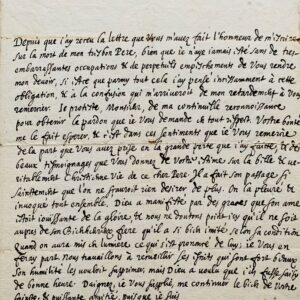 Depuis que i'ay receu la lettre que vous m'auez fait l'honneur de m'escrire
sur la mort de mon tresbon Pere, bien que ie n'aye iamais esté sans de tres
embarrassantes occupations & de perpetuels empeschemens de Vous rendre
mon deuoir, si est-ce que parmy tout cela i'ay pensé incessamment à cette
obligation, & à la confusion qui m'arriueroit de mon retardement à Vous
remercier. Ie proteste, Monsieur, de ma continuelle reconnoissance
pour obtenir le pardon que ie Vous demande en tout respect. Vostre bonté
me le fait esperer, & c'est dans ces sentimens que ie Vous remercie
de la part que Vous auez prise en la grande perte que i'ay faite, & des
beaux tesmoignages que Vous donnez de Vostre estime sur la belle & ve-
ritablement Chrestienne Vie de ce cher Pere. Il a fait son passage si
saintement que l'on ne sçauroit rien desirer de plus. On le pleure & on
inuoque tout ensemble. Dieu a manifesté par des graces que son ame
estoit iouissante de la gloire, & nous ne doutons point qu'il ne soit
aupres de son Bienheureux Frere qu'il a si bien imité selon sa condition
Quand on aura mis en lumiere ce qui s'est prononcé de luy, ie Vous en
feray part. Nous trauaillons à recueillir ses faits qui sont fort beaux
Son humilité les vouloit supprimer, mais Dieu a voulu que i'en sçeusse
de bonne heure. Daignez, ie Vous supplie, me continuer le bien de Vostre
& puissante amitié, puisque ie suis